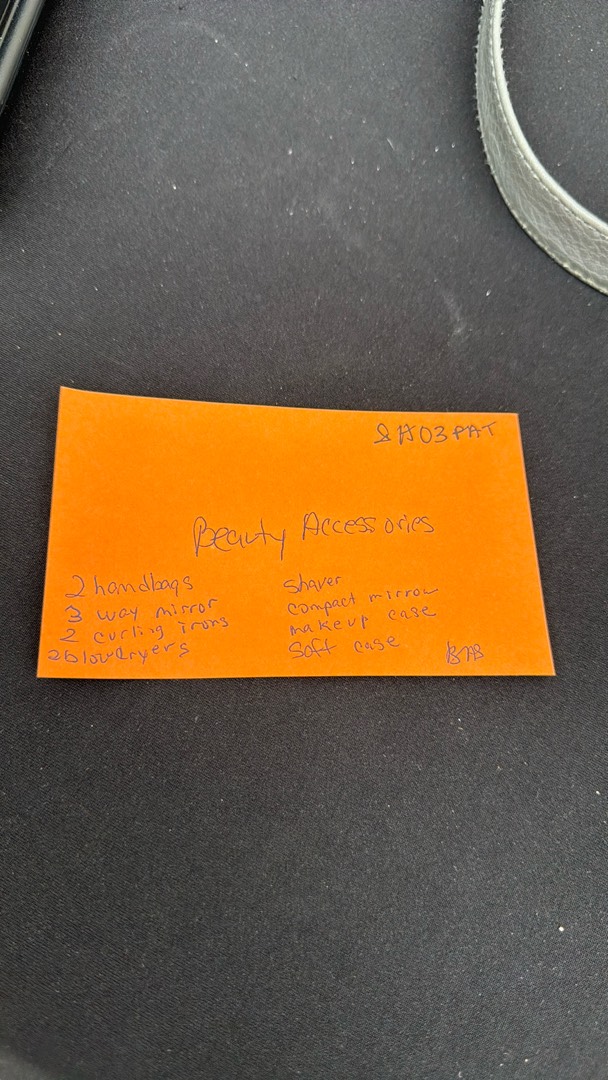 Beauty Accessories
2 handbags
3 way mirror
2 curling irons
2 blowdryers
Shaver
compact mirror
makeup case
Soft case